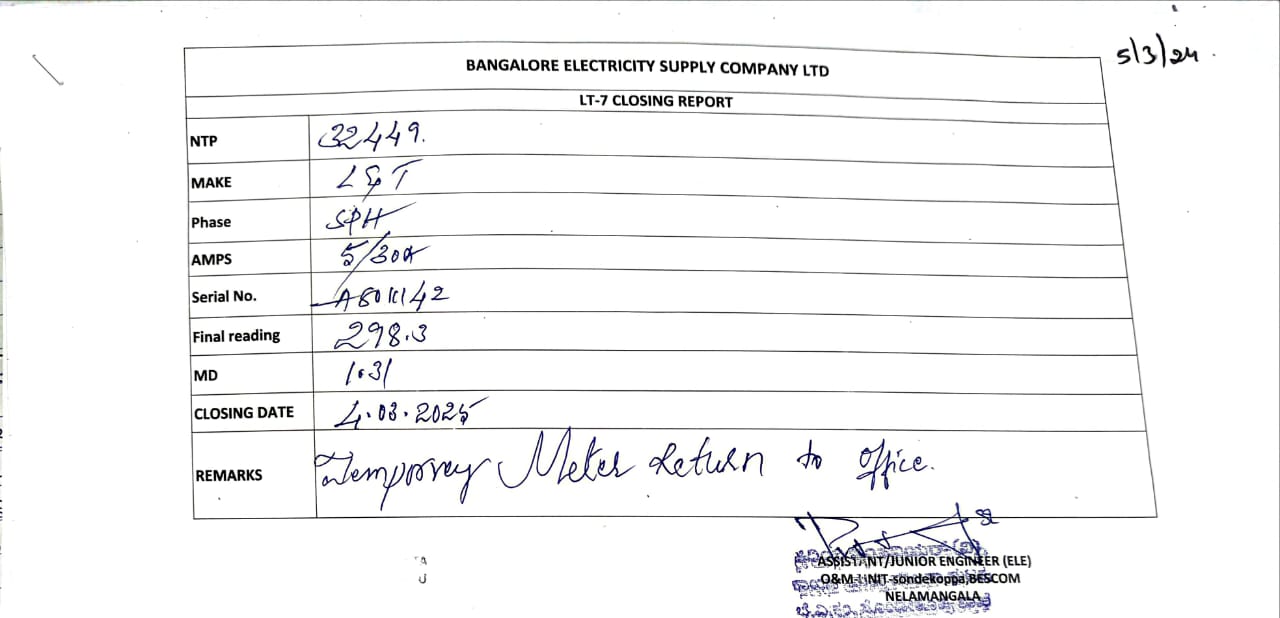 5/3/24.
BANGALORE ELECTRICITY SUPPLY COMPANY LTD
LT-7 CLOSING REPORT
NTP 32449.
MAKE L&T
Phase SPH
AMPS 5/30A
Serial No.
Final reading 298.3
MD 1.31
CLOSING DATE 4.03.2025
REMARKS Temporey Meter Return to office.
ASSISTANT/JUNIOR ENGINEER (ELE)
O&M UNIT-sondekoppa,BESCOM
NELAMANGALA